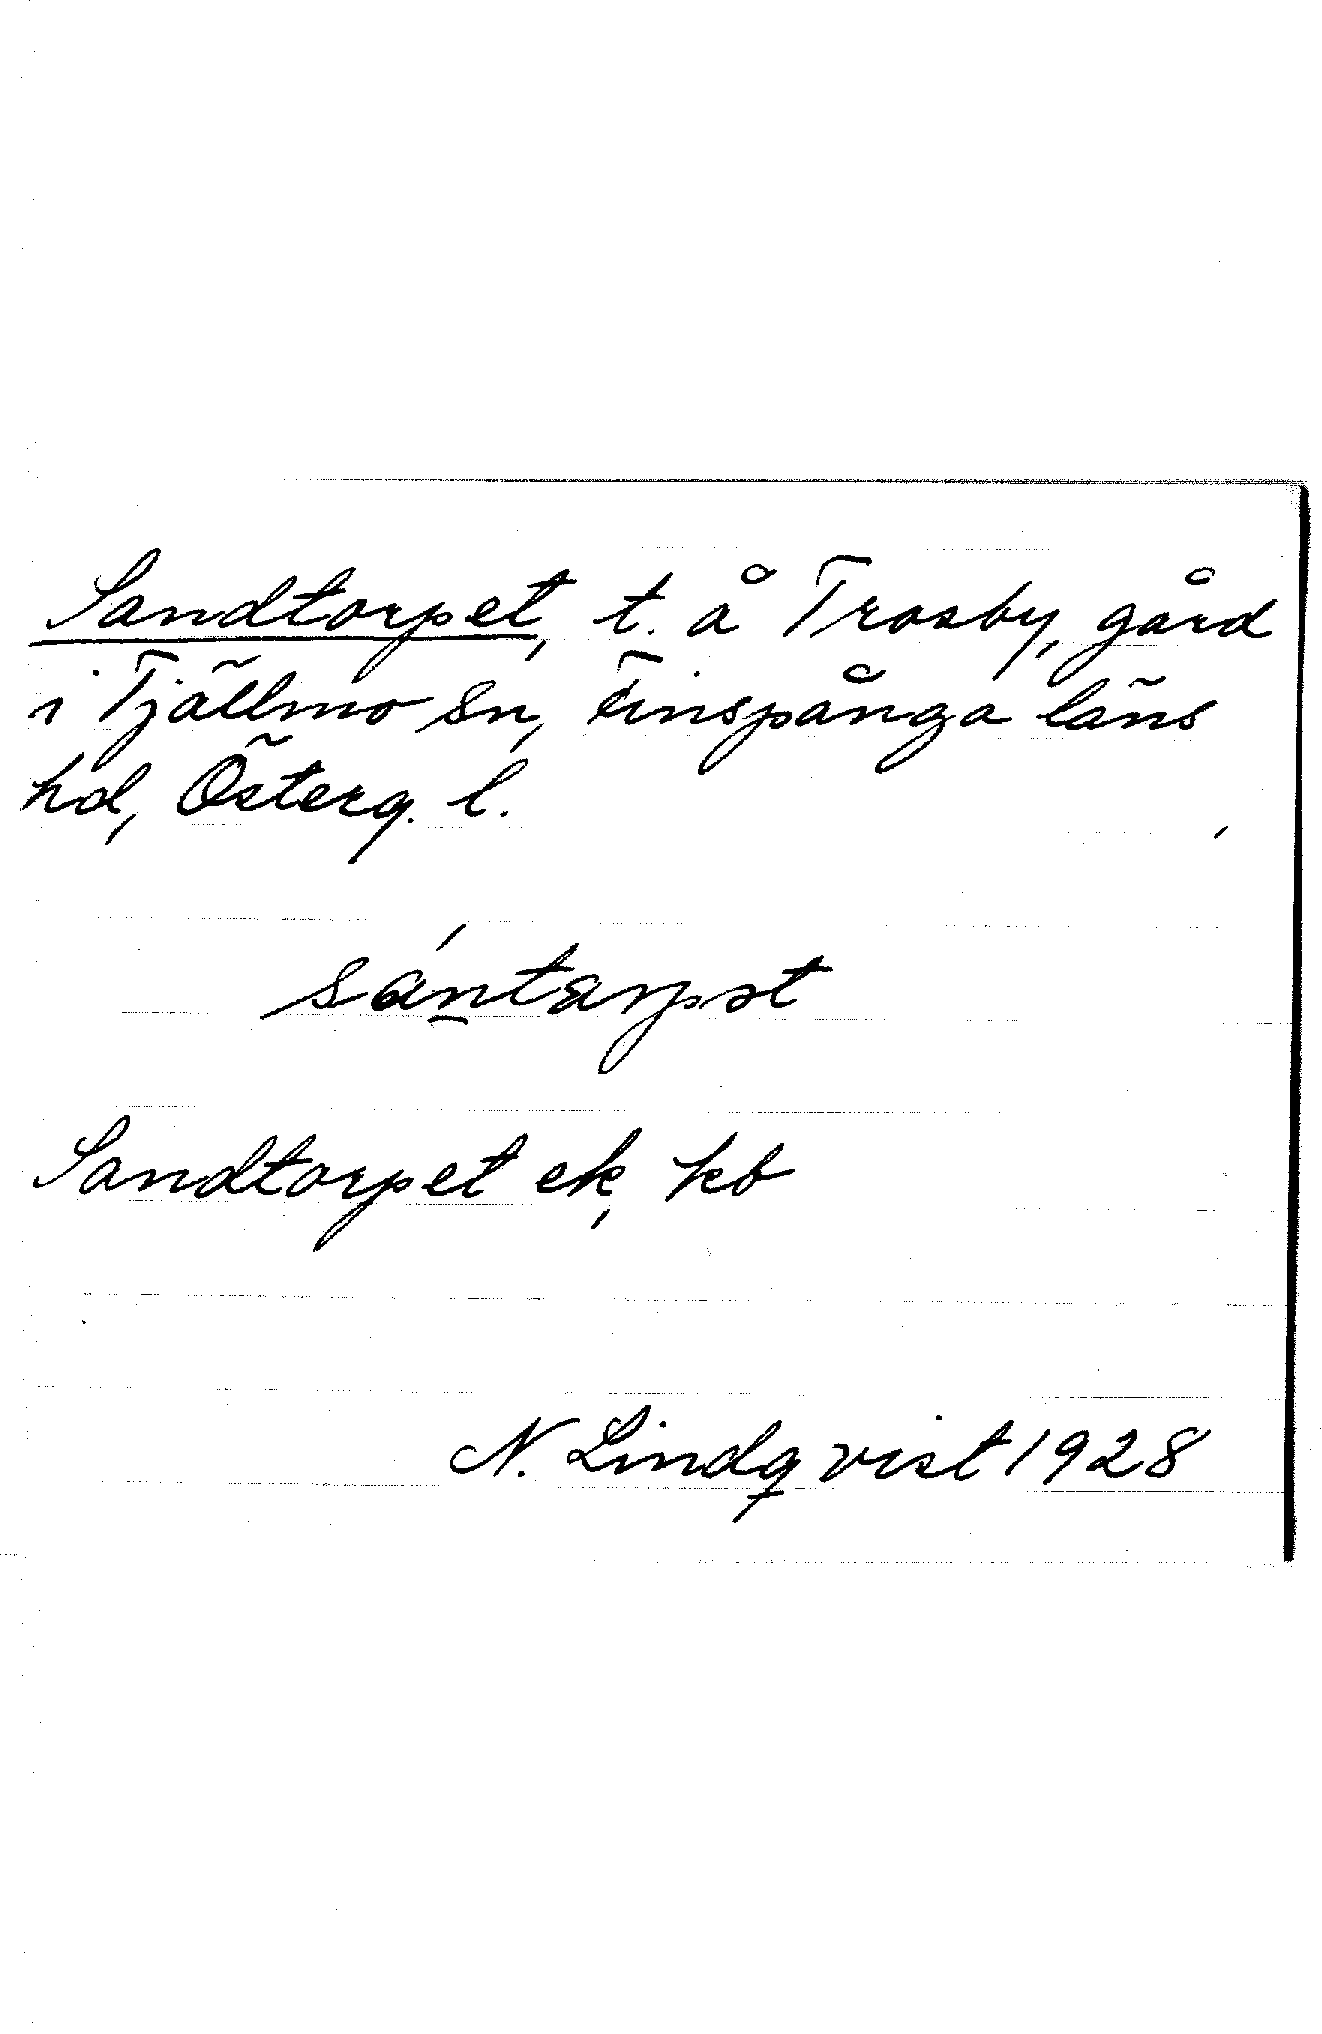 Sandtorpet, t. å Trosby, gård
i Tjällmo sn, Finspånga läns
hd, Österg. l.
sántarpət
Sandtorpet ek, kb
N. Lindqvist 1928